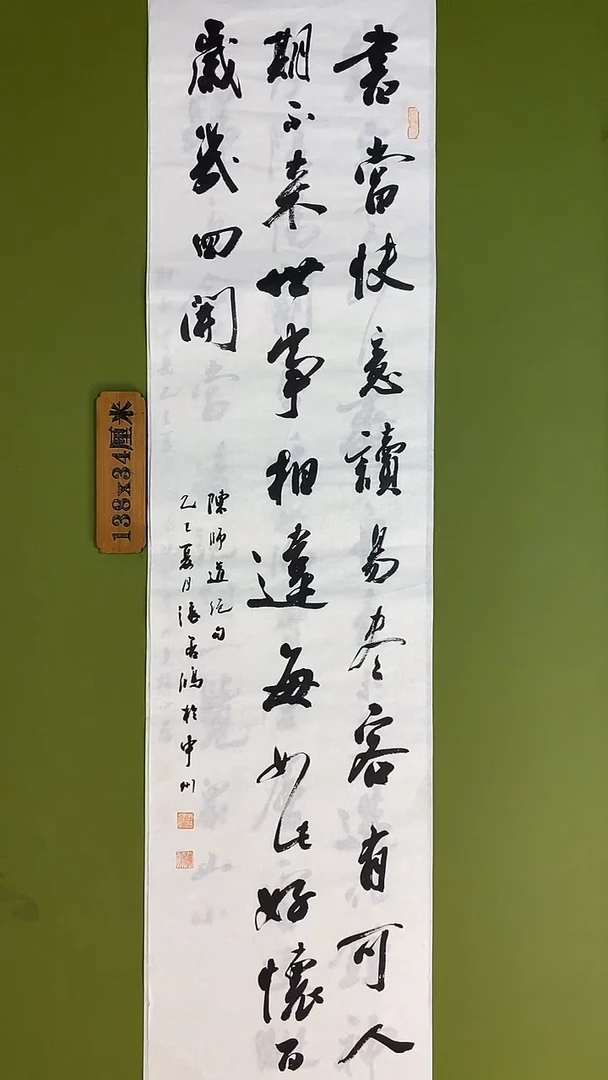 書當快意讀易盡客有可人
期不來世事相違每如此好懷百
歲幾回開
陳師道絕句
乙巳夏月張鴻於中州
138x34厘米